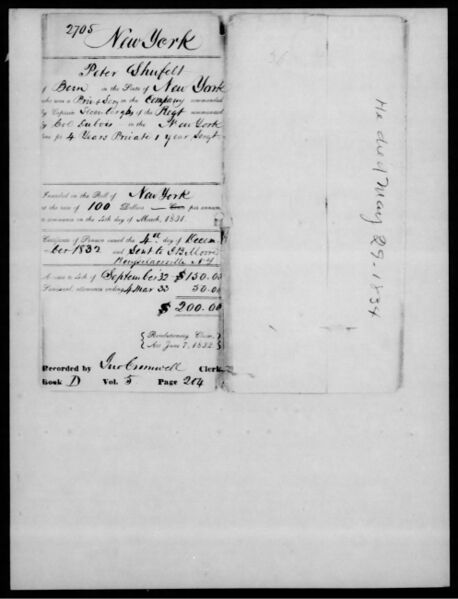 2705
New York
Peter Shufelt
of Bern in the State of New York
who was a Priv & Serg in the Company commanded
by Captain of the Regt commanded
by Col Dubois in the New York
line for 4 Years Private 1 year Sergt
Inscribed on the Roll of New York
at the rate of 100 Dollars — Cents per annum
to commence on the 4th day of March, 1831.
Certificate of Pension issued the 4th day of Decem-
ber 1832 and Sent to J B Moore
Rensselaerville N.Y.
Arrears to 4th of September 32 $150.00
Semi-anl. allowance ending 4 Mar 33 50.00
$200.00
{ Revolutionary Claim, }
{ Act June 7, 1832. }
Recorded by Jno Cromwell Clerk,
Book D Vol. 5 Page 204
He died May 29. 1834